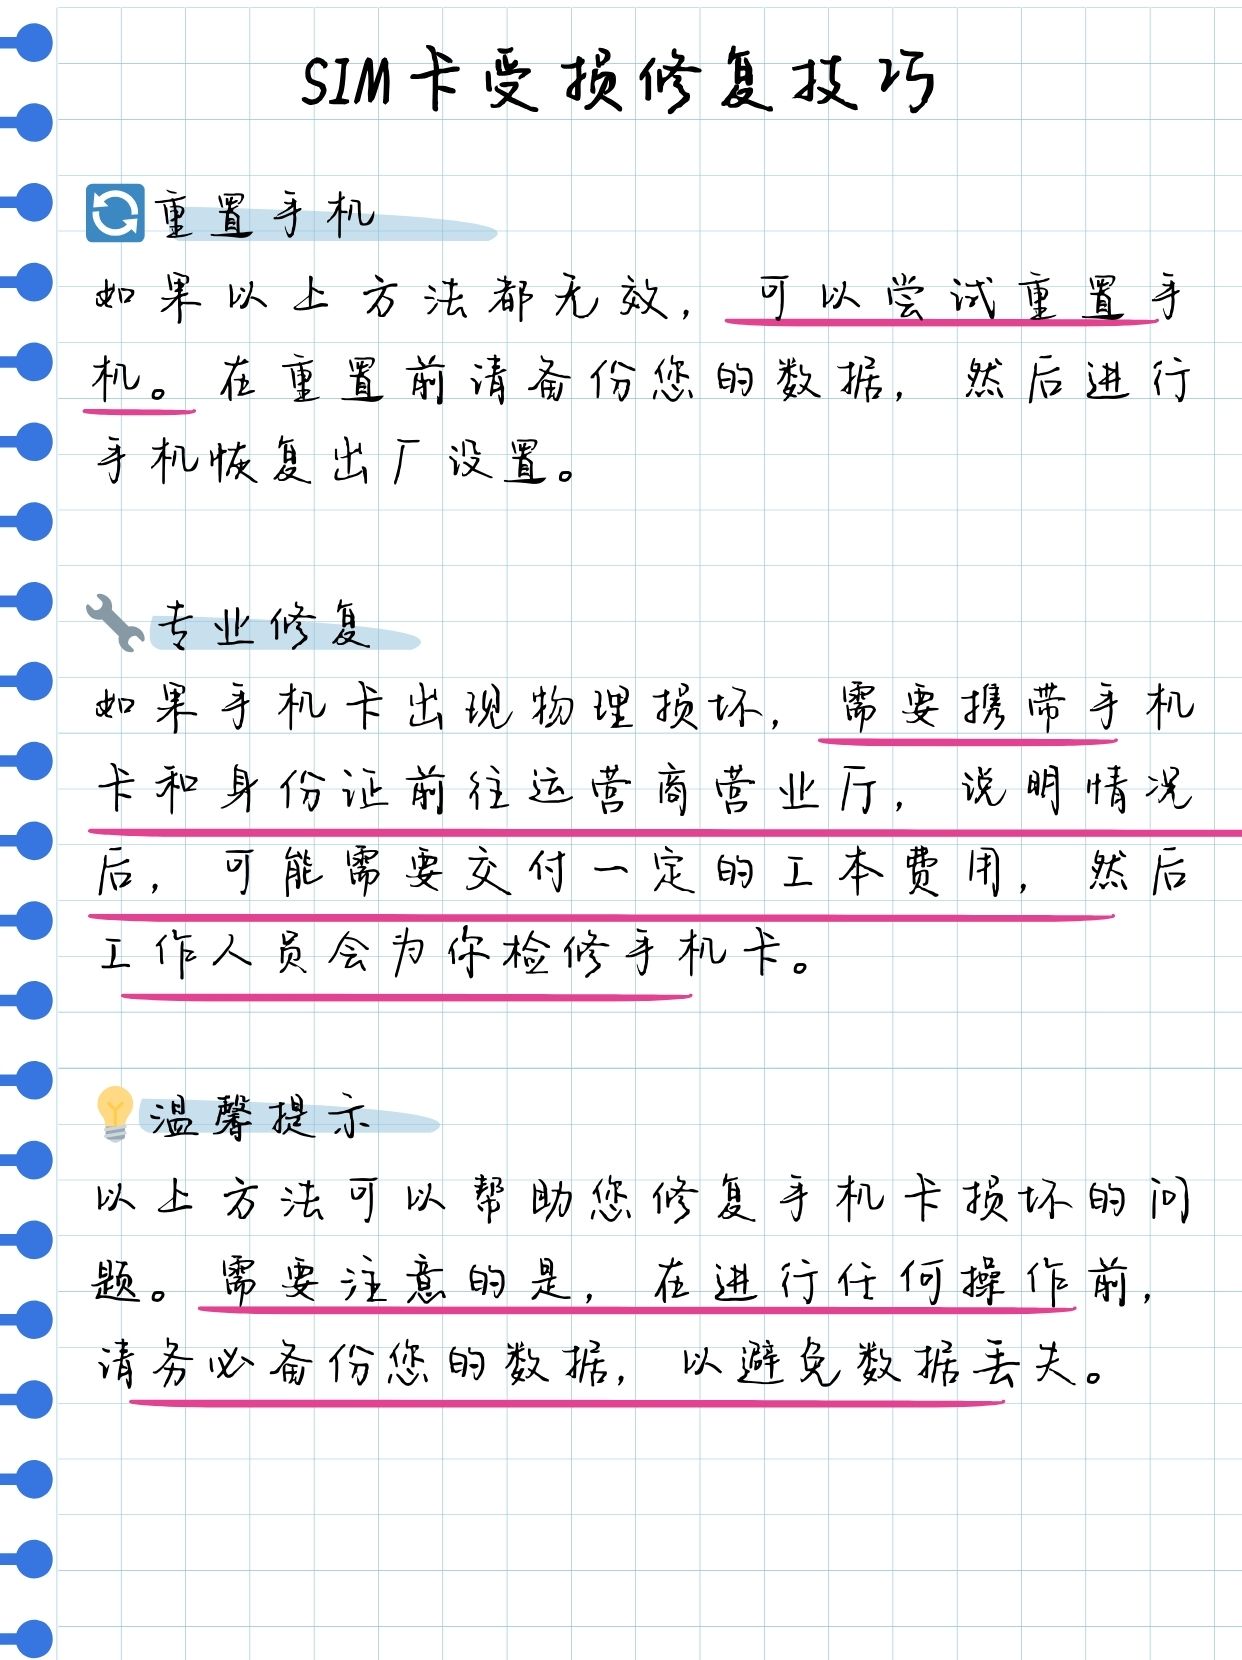 SIM卡受损修复技巧
重置手机
如果以上方法都无效，可以尝试重置手
机。在重置前请备份您的数据，然后进行
手机恢复出厂设置。
专业修复
如果手机卡出现物理损坏，需要携带手机
卡和身份证前往运营商营业厅，说明情况
后，可能需要交付一定的工本费用，然后
工作人员会为你检修手机卡。
温馨提示
以上方法可以帮助您修复手机卡损坏的问
题。需要注意的是，在进行任何操作前，
请务必备份您的数据，以避免数据丢失。